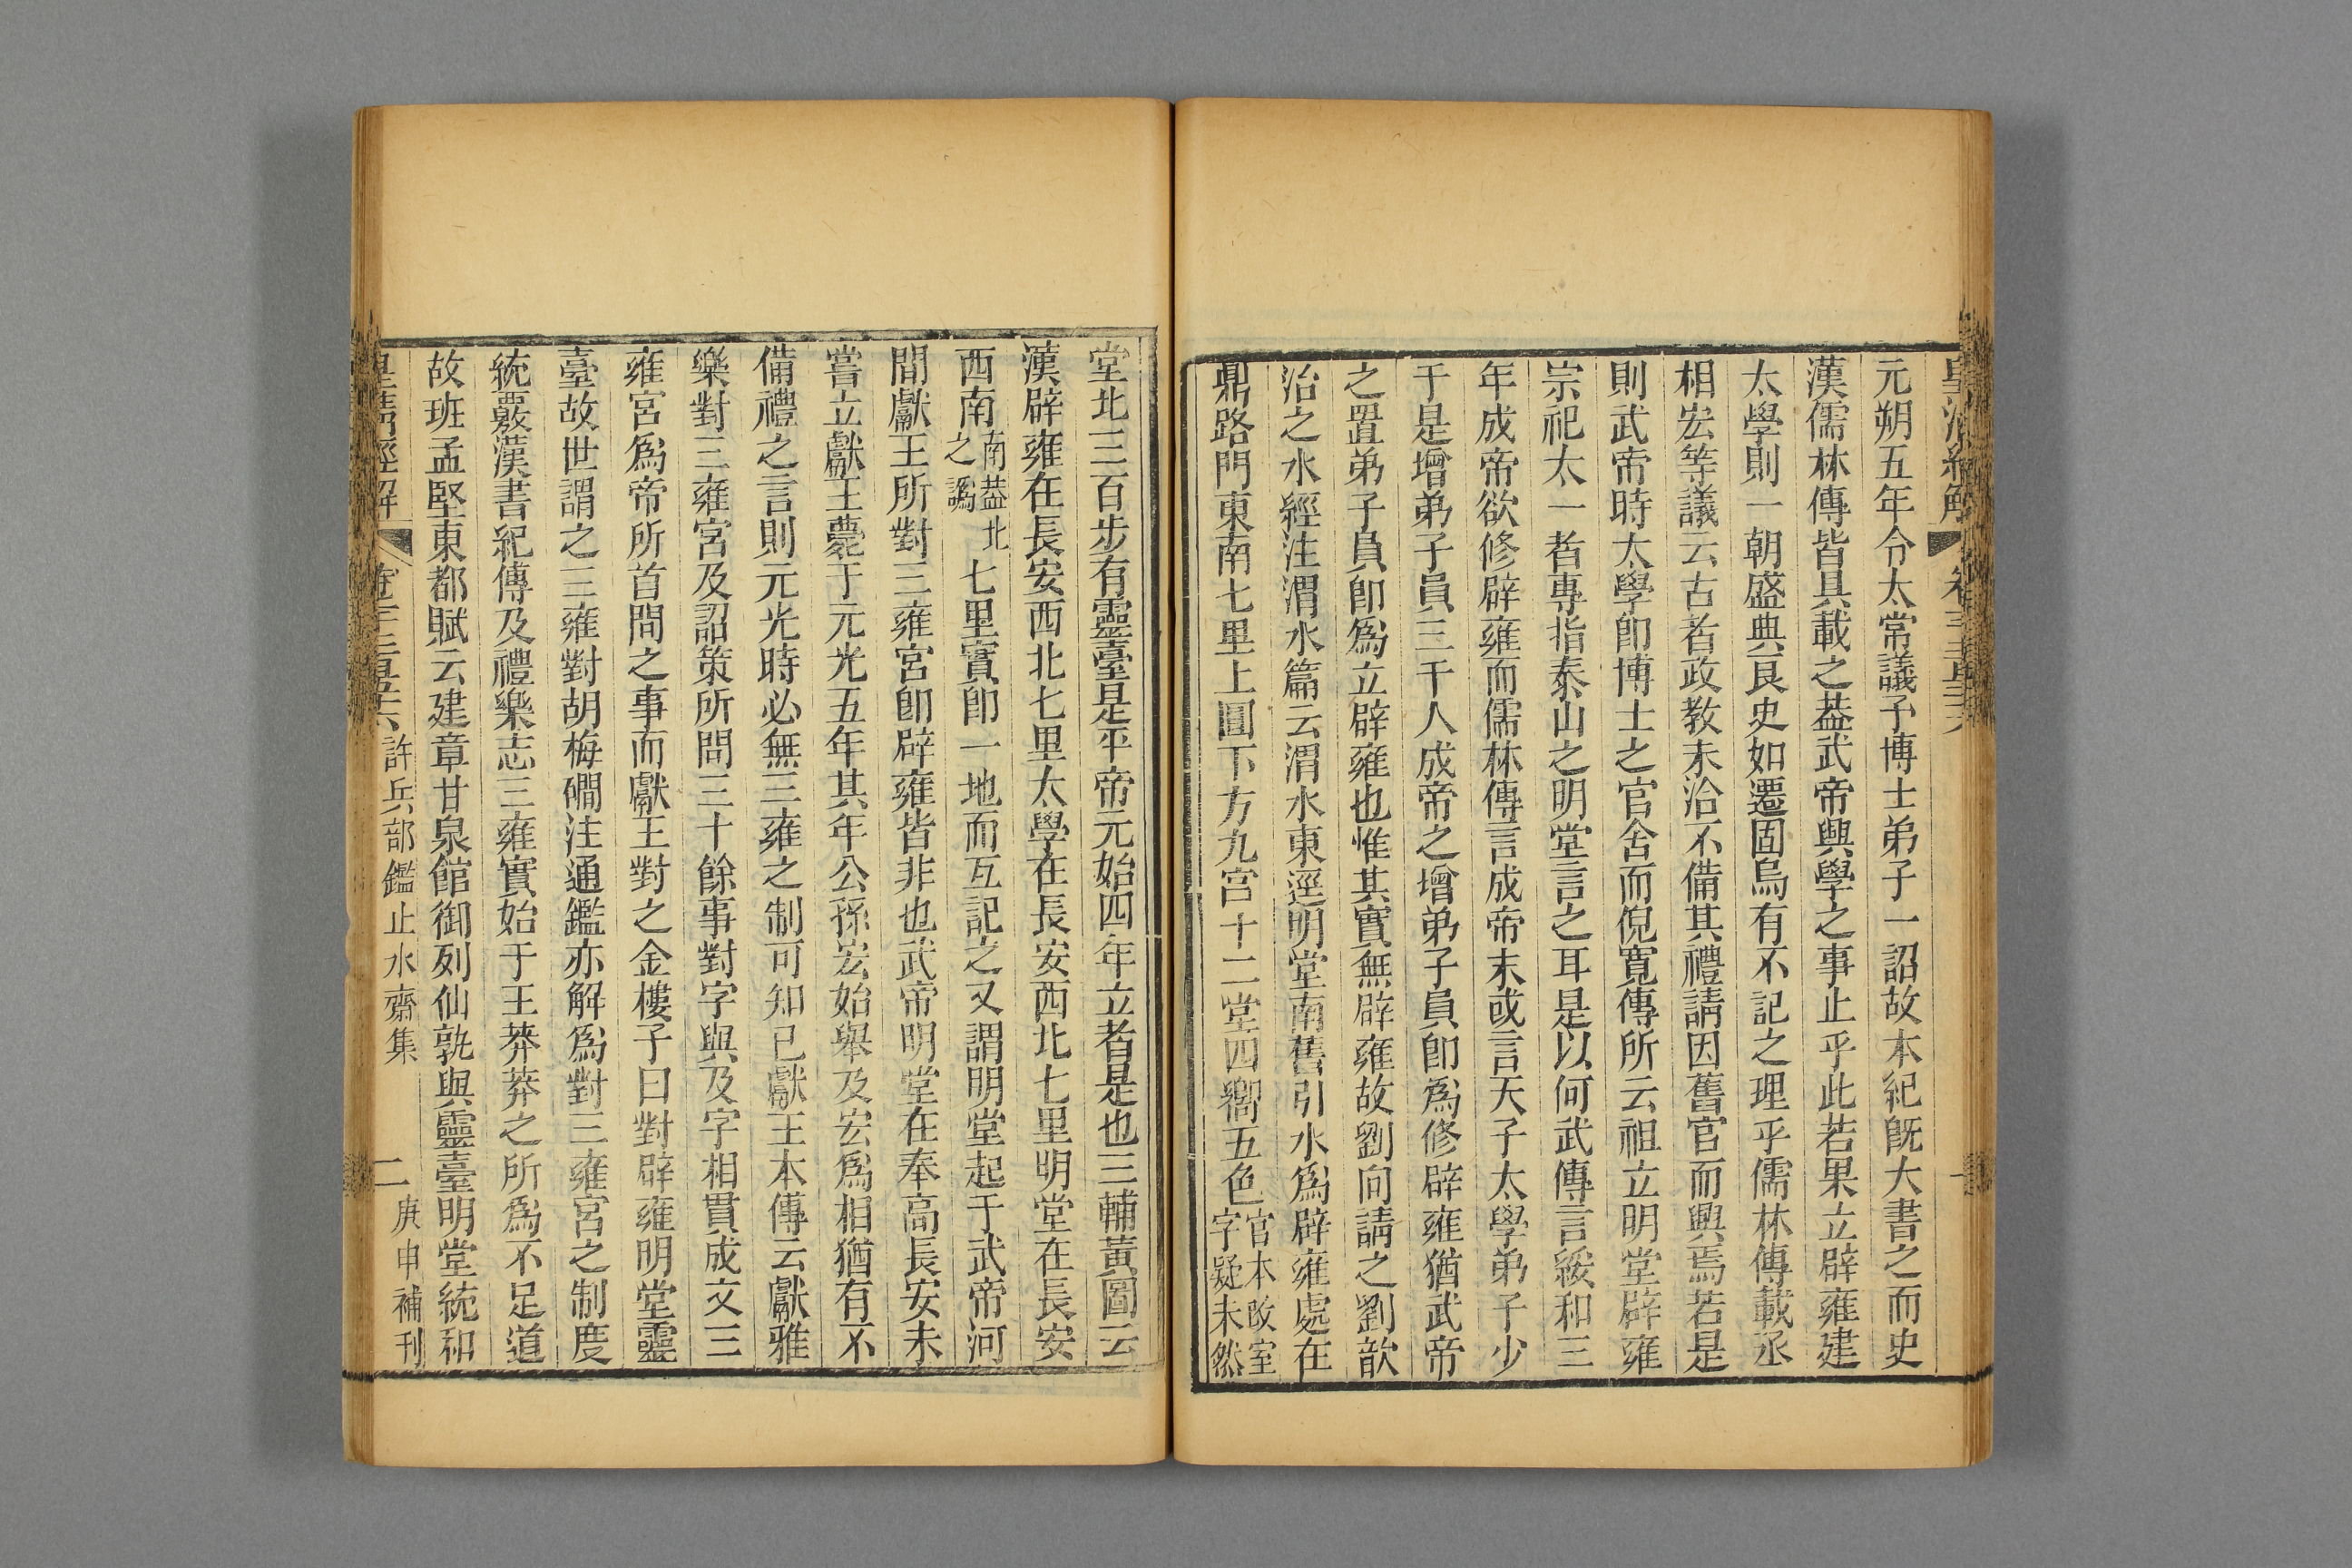 皇清經解
元朔五年令太常議予博士弟子一詔故本紀旣大書之而史
漢儒林傳皆具載之葢武帝與學之事止乎此若果立辟雍建
太學則一朝盛典良史如遷固烏有不記之理乎儒林傳載丞
相宏等議云古者政教未洽不備其禮請因舊官而興焉若是
則武帝時太學卽博士之官舍而倪寛傳所云祖立明堂辟雍
宗祀太一者專指泰山之明堂言之耳是以何武傳言綏和三
年成帝欲修辟雍而儒林傳言成帝末或言天子太學弟子少
于是增弟子員三千人成帝之增弟子員卽爲修辟雍猶武帝
之置弟子員卽爲立辟雍也惟其實無辟雍故劉向請之劉歆
治之水經注渭水篇云渭水東逕明堂南舊引水爲辟雍處在
鼎路門東南七里上圓下方九宮十二堂四嚮五色官本改室字疑未然
堂北三百步有靈臺是平帝元始四年立者是也三輔黃圖云
漢辟雍在長安西北七里太學在長安西北七里明堂在長安
西南南葢北之譌七里實卽一地而互記之又謂明堂起于武帝河
間獻王所對三雍宮卽辟雍皆非也武帝明堂在奉高長安未
嘗立獻王薨于元光五年其年公孫宏始舉及宏爲相猶有不
備禮之言則元光時必無三雍之制可知已獻王本傳云獻雅
樂對三雍宮及詔策所問三十餘事對字與及字相貫成文三
雍宮爲帝所首問之事而獻王對之金樓子曰對辟雍明堂靈
臺故世謂之三雍對胡梅磵注通鑑亦解爲對三雍宮之制度
統覈漢書紀傳及禮樂志三雍實始于王莽莽之所爲不足道
故班孟堅東都賦云建章甘泉館御列仙孰與靈臺明堂統和
皇清經解
許兵部鑑止水齋集
二
庚申補刊